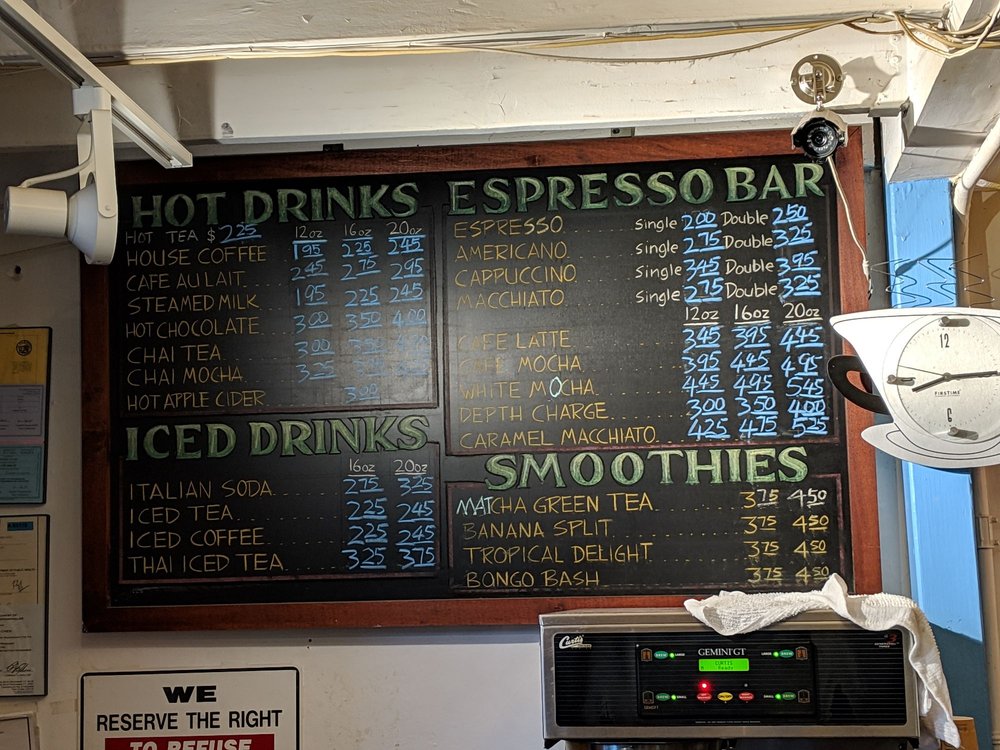 HOT DRINKS
HOT TEA $2.25 12oz 16oz 20oz
HOUSE COFFEE 1.95 2.25 2.45
CAFE AU LAIT 2.45 2.75 2.95
STEAMED MILK 1.95 2.25 2.45
HOT CHOCOLATE 3.00 3.50 4.00
CHAI TEA 3.00
CHAI MOCHA
HOT APPLE CIDER 3.00
ICED DRINKS
16oz 20oz
ITALIAN SODA 2.75 3.25
ICED TEA 2.25 2.45
ICED COFFEE 2.25 2.45
THAI ICED TEA 3.25 3.75
ESPRESSO BAR
ESPRESSO Single 2.00 Double 2.50
AMERICANO Single 2.75 Double 3.25
CAPPUCCINO Single 3.45 Double 3.95
MACCHIATO Single 2.75 Double 3.25
12oz 16oz 20oz
CAFE LATTE 3.45 3.95 4.45
CAFE MOCHA 3.95 4.45 4.95
WHITE MOCHA 4.45 4.95 5.45
DEPTH CHARGE 3.00 3.50 4.00
CARAMEL MACCHIATO 4.25 4.75 5.25
SMOOTHIES
MATCHA GREEN TEA 3.75 4.50
BANANA SPLIT 3.75 4.50
TROPICAL DELIGHT 3.75 4.50
BONGO BASH 3.75 4.50
12
FIRSTIME
6
Curtis
GEMINI GT
CURTIS
Ready
WE
RESERVE THE RIGHT
TO REFUSE